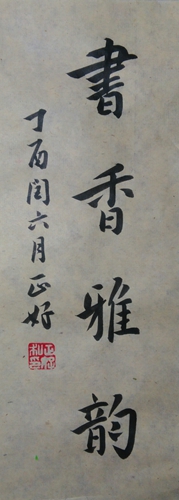 書香雅韵
丁酉闰六月正好